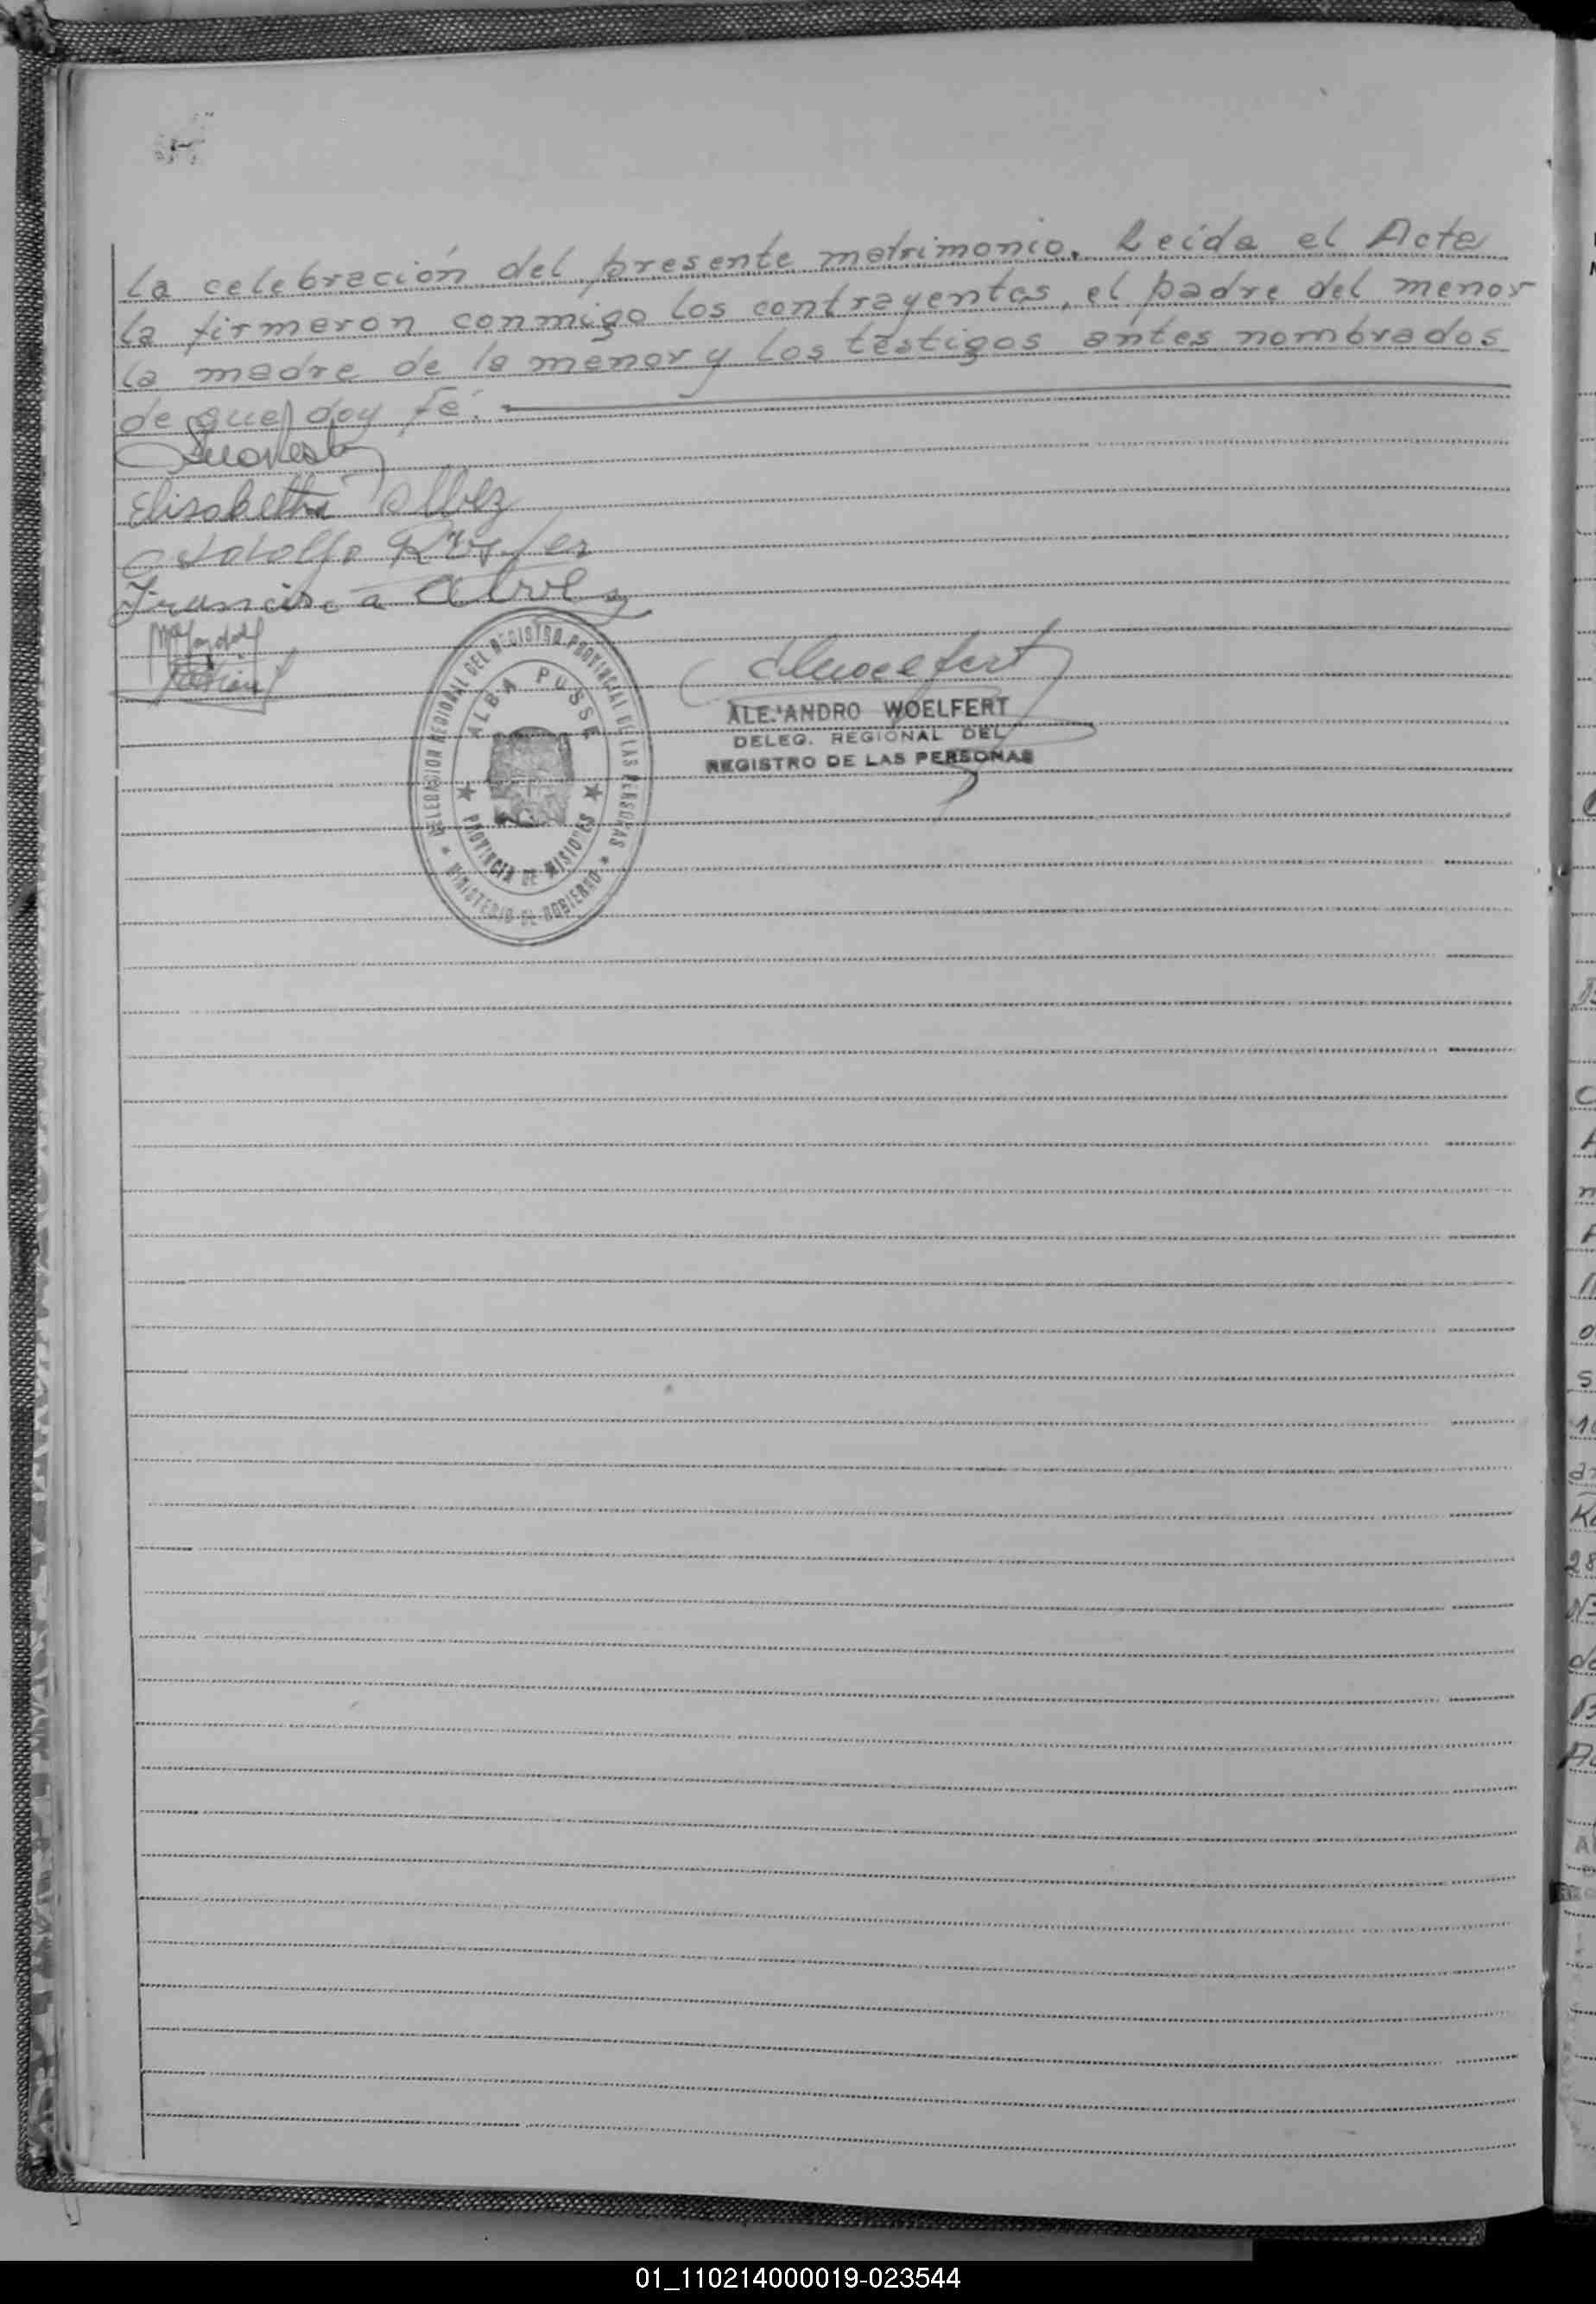 la celebración del presente matrimonio. Leída el Acta
la firmaron conmigo los contrayentes, el padre del menor
la madre de la menor y los testigos antes nombrados
de que doy fé.
Elisabetha Alvez
Adolfo
Francisca Alvez
DELEGACION REGIONAL DEL REGISTRO PROVINCIAL DE LAS PERSONAS
ALBA POSSE
PROVINCIA DE MISIONES
MINISTERIO DE GOBIERNO
AWoelfert
ALEJANDRO WOELFERT
DELEG. REGIONAL DEL
REGISTRO DE LAS PERSONAS
01_110214000019-023544